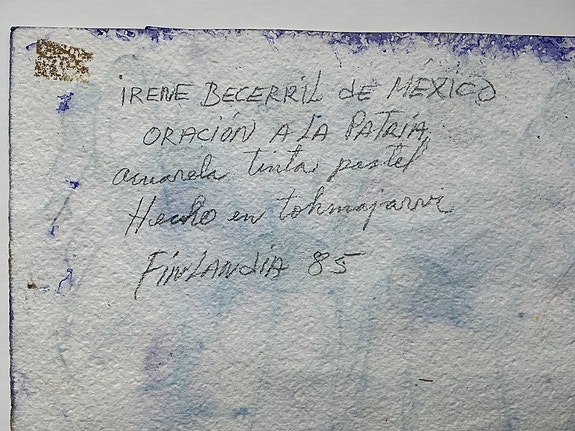 IRENE BECERRIL de MÉXICO
ORACIÓN A LA PATRIA
acuarela tinta pastel
Hecho en tohmajarvi
FINLANDIA 85